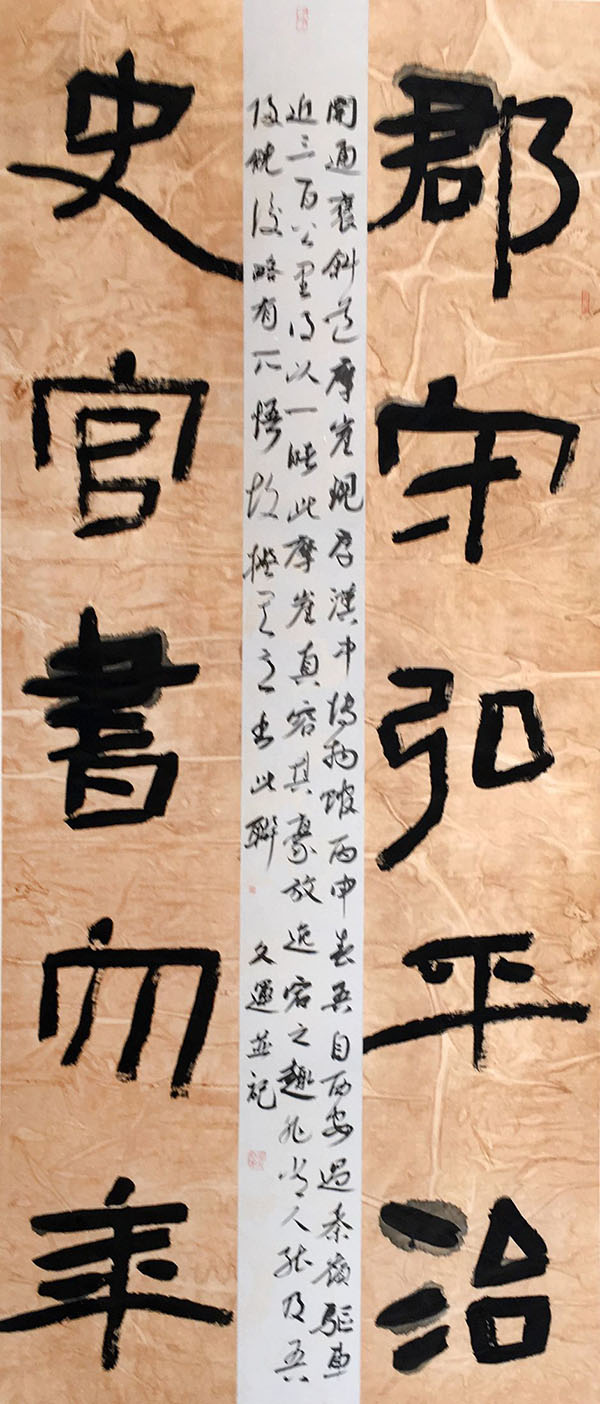 郡守弘平治
開通褒斜道摩崖現存漢中博物館丙申春吾自西安過秦嶺驅車
近三百公里得以一睹此摩崖真容其豪放逸宕之趣非常人能及吾
後略有所悟故擬其意書此聯 文運並記
史官書年